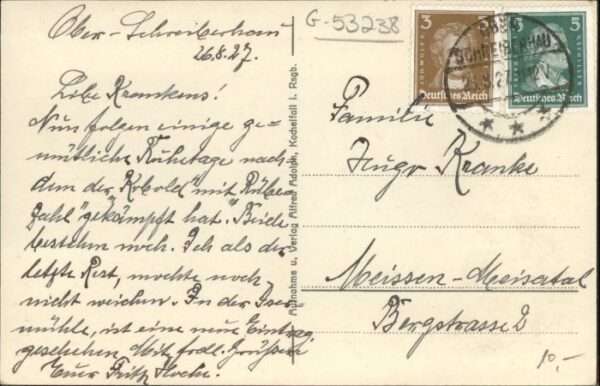 Ober-Schreiberhau
26.8.27.
Liebe Krankens!
Nun folgen einige ge-
mütliche Ruhetage nach-
dem der „Kobold" mit „Rübe-
zahl" gekämpft hat. Beide
bestehn noch. Ich als der
letzte Rest, mochte noch
nicht weichen. In der
mühle, ist eine neue Eintrag
geschehen. Mit frdl. Grüßen
Euer Fritz
Aufnahme u. Verlag Alfred Adolph, Kochelfall i. Rsgb.
G-53238
3
Deutsches Reich
5
Deutsches Reich
SCHREIBERHAU
Familie
Hugo Kranke
Meissen-Meisatal
Bergstrasse 2
10,-